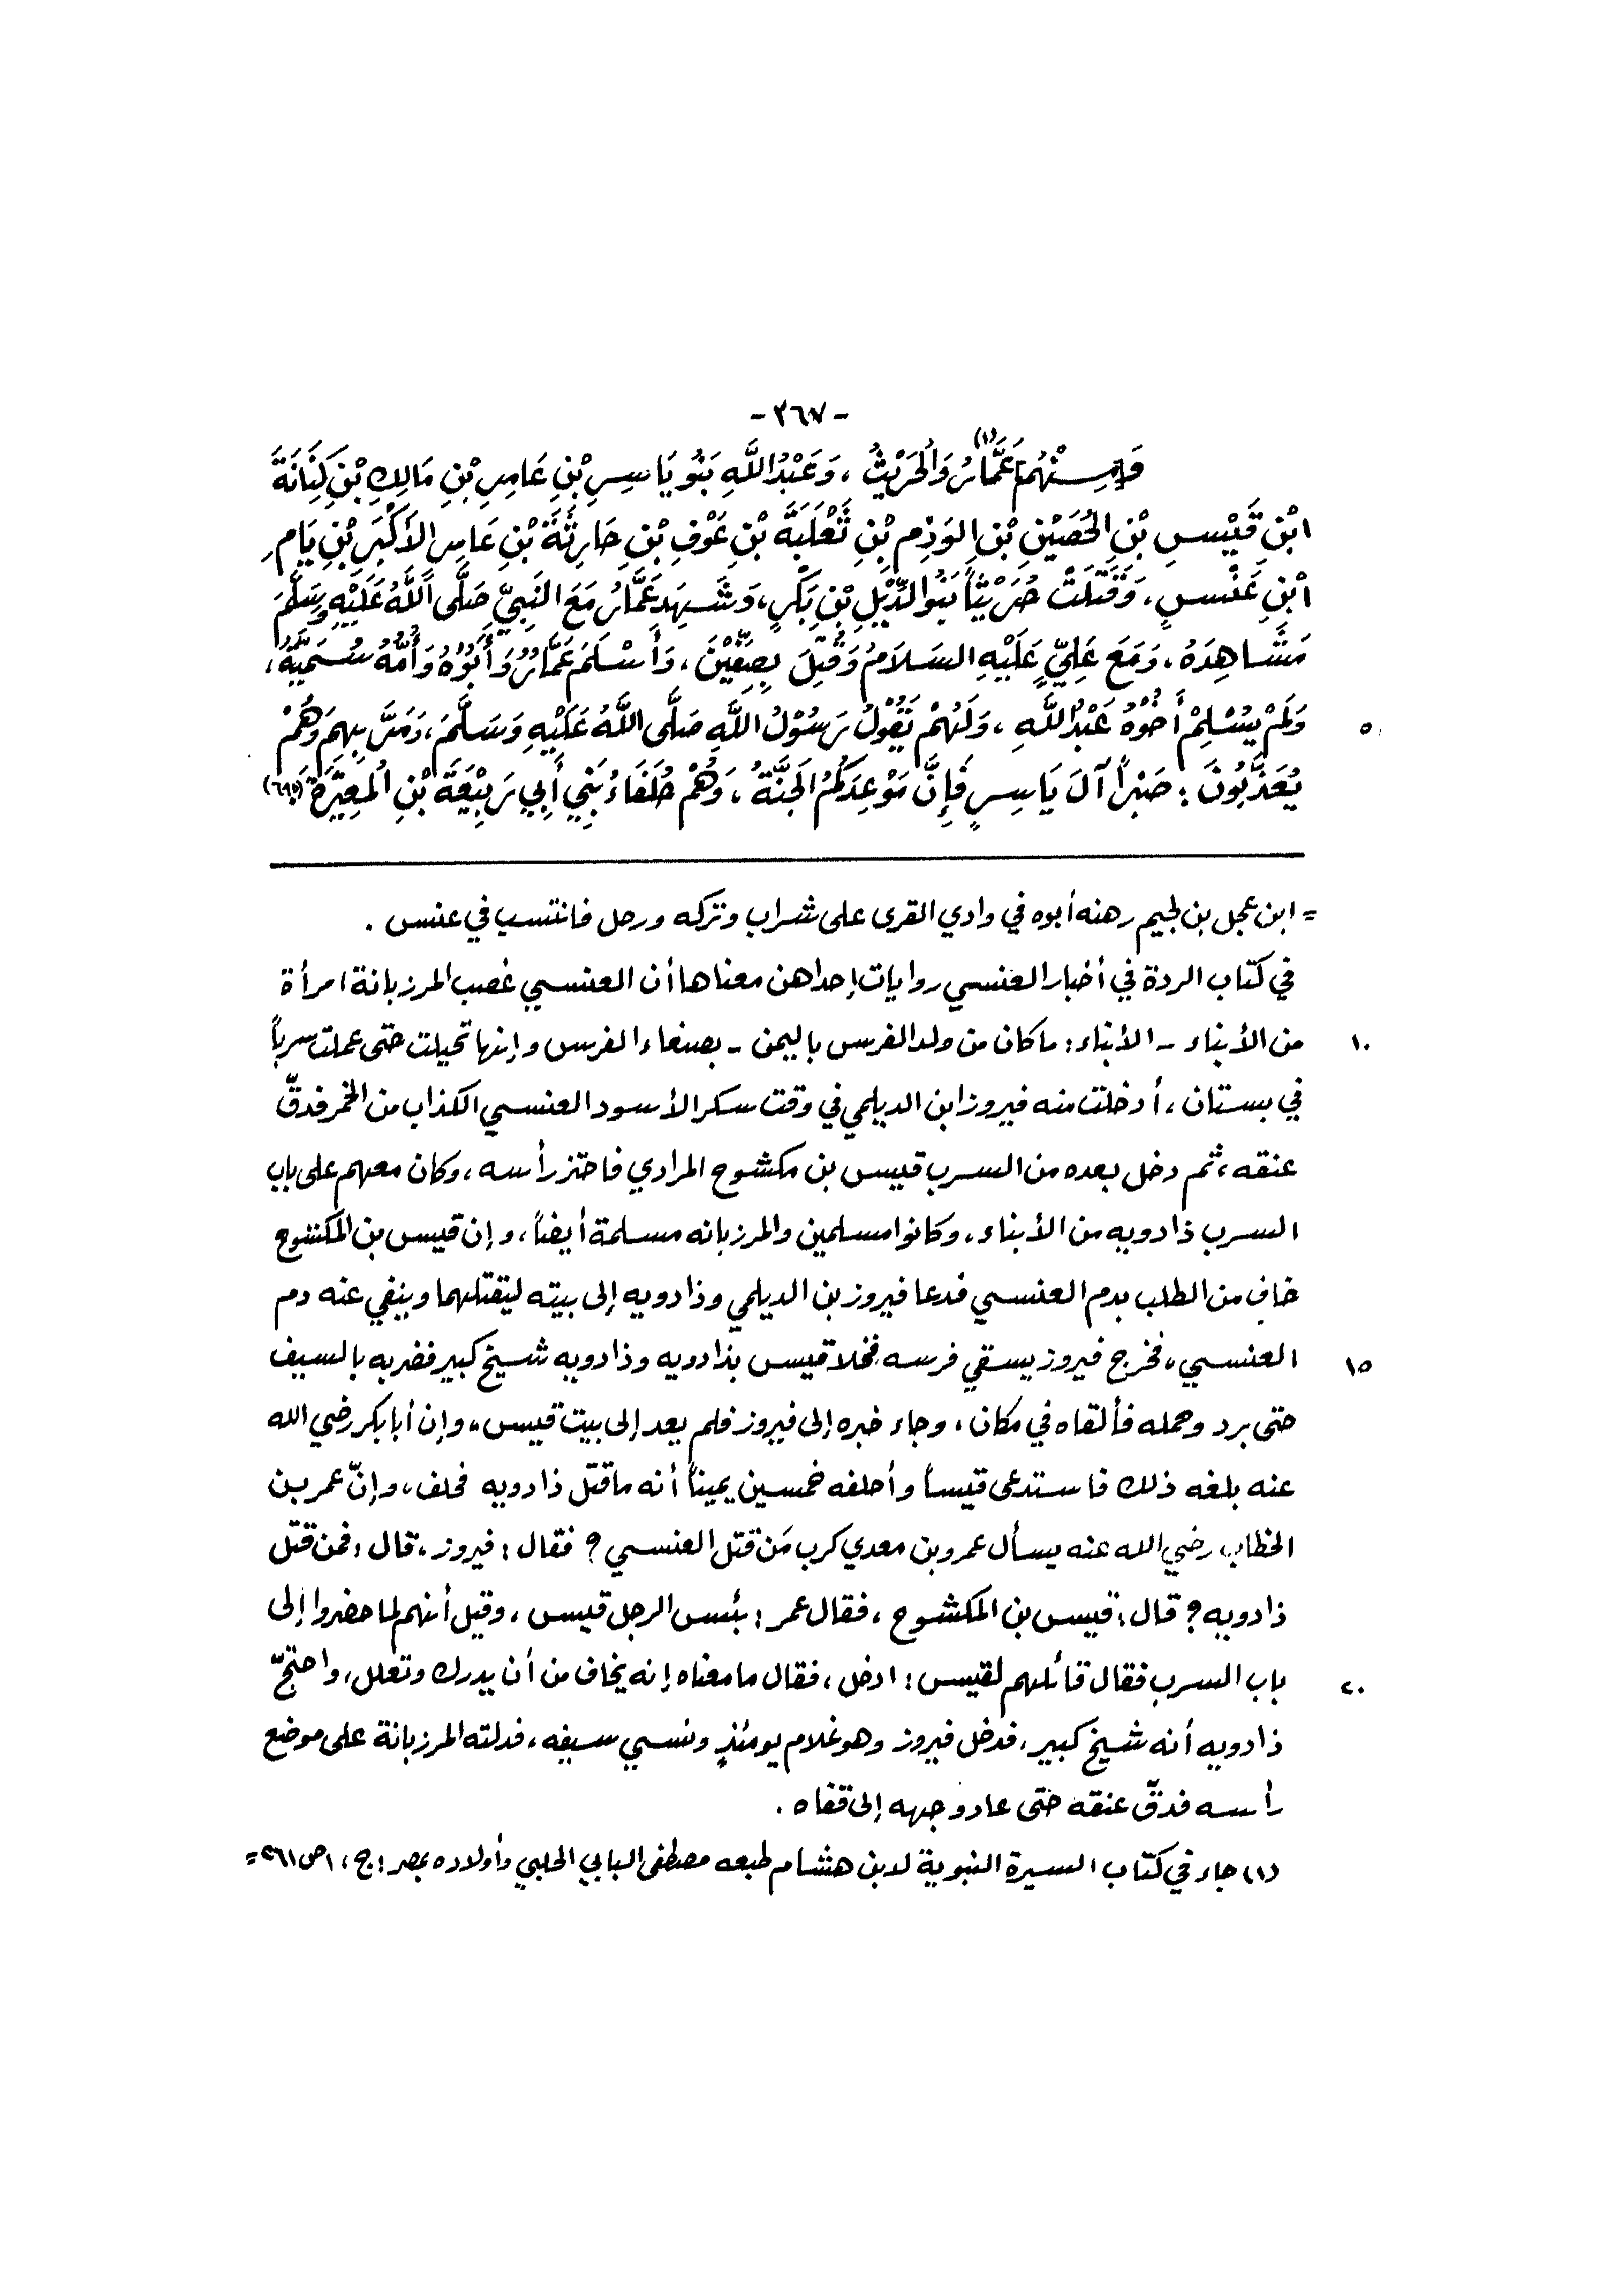 - ٣٦٧ -
وَمِنْهُمْ عَمَّارُ(١) وَالحُرَيْثُ ، وَعَبْدُ اللَّهِ بَنُو يَاسِرِ بْنِ عَامِرِ بْنِ مَالِكِ بْنِ كِنَانَةَ
ابْنِ قَيْسِ بْنِ الحُصَيْنِ بْنِ الوَذِيمِ بْنِ ثَعْلَبَةَ بْنِ عَوْفِ بْنِ حَارِثَةَ بْنِ عَامِرِ الأَكْبَرِ بْنِ يَامِ
ابْنِ عَنْسٍ ، وَقَتَلَتْ حُرَيْثاً بَنُو الدِّيْلِ بْنِ بَكْرٍ ، وَشَهِدَ عَمَّارُ مَعَ النَبِيِّ صَلَّى اللَّهُ عَلَيْهِ وَسَلَّمَ
مَشَاهِدَهُ ، وَمَعَ عَلِيٍّ عَلَيْهِ السَلَامُ وَقُتِلَ بِصِفِّيْنَ ، وَأَسْلَمَ عَمَّارُ وَأَبُوْهُ وَأُمُّهُ سُمَيَّةُ ،
٥ وَلَمْ يُسْلِمْ أَخُوْهُ عَبْدُ اللَّهِ ، وَلَهُمْ يَقُوْلُ رَسُوْلُ اللَّهِ صَلَّى اللَّهُ عَلَيْهِ وَسَلَّمَ ، وَمَرَّ بِهِمْ وَهُمْ
يُعَذَّبُونَ : صَبْراً آلَ يَاسِرٍ فَإِنَّ مَوْعِدَكُمُ الجَنَّةُ ، وَهُمْ حُلَفَاءُ بَنِي أَبِي رَبِيْعَةَ بْنِ المُغِيْرَةِ
= ابن عجل بن لجيم رهنه أبوه في وادي القرى على شراب وتركه ورحل فانتسب في عنس .
في كتاب الردة في أخبار العنسي روايات إحداهن معناها أن العنسي غصب المرزبانة امرأة
١٠ من الأبناء - الأبناء : ما كان من ولد الفرس باليمن - بصنعاء الفرس وإنها تحيلت حتى عملت سرباً
في بستان ، أدخلت منه فيروز ابن الديلمي في وقت سكر الأسود العنسي الكذاب من الخمر فدقّ
عنقه ، ثم دخل بعده من السرب قيس بن مكشوح المرادي فاحتز رأسه ، وكان معهم على باب
السرب ذادويه من الأبناء ، وكانوا مسلمين والمرزبانه مسلمة أيضاً ، وإن قيس بن المكشوح
خاف من الطلب بدم العنسي فدعا فيروز بن الديلمي وذادويه إلى بيته ليقتلهما وينفي عنه دم
١٥ العنسي ، فخرج فيروز يسقي فرسه فخلا قيس بذادويه وذادويه شيخ كبير فضربه بالسيف
حتى برد وحمله فألقاه في مكان ، وجاء خبره إلى فيروز فلم يعد إلى بيت قيس ، وإن أبا بكر رضي الله
عنه بلغه ذلك فاستدعى قيساً وأحلفه خمسين يميناً أنه ما قتل ذادويه فحلف ، وإنّ عمر بن
الخطاب رضي الله عنه يسأل عمرو بن معدي كرب مَن قتل العنسي ؟ فقال : فيروز ، قال : فمن قتل
ذادويه ؟ قال : قيس بن المكشوح ، فقال عمر : بئس الرجل قيس ، وقيل أنهم لما حضروا إلى
٢٠ باب السرب فقال قائلهم لقيس : ادخل ، فقال ما معناه إنه يخاف من أن يدرك وتعلل ، واحتجّ
ذادويه أنه شيخ كبير ، فدخل فيروز وهو غلام يومئذٍ ونسي سيفه ، فدلته المرزبانة على موضع
رأسه فدقّ عنقه حتى عاد وجهه إلى قفاه .
(١) جاء في كتاب السيرة النبوية لابن هشام طبعه مصطفى البابي الحلبي وأولاده بمصر : ج ، ١ ص ٢٦١ =